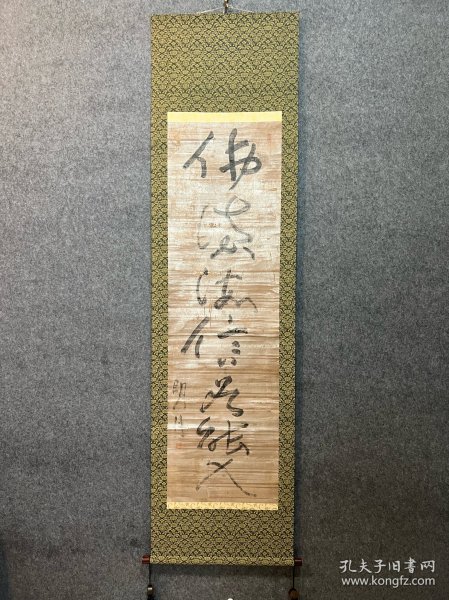 佛法大海信為能入
明月
孔夫子旧书网
www.kongfz.com